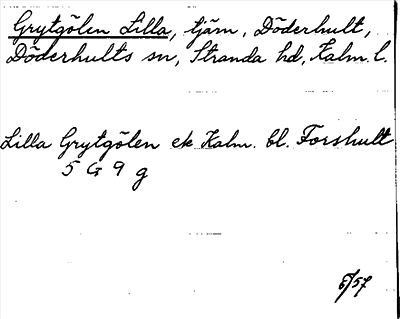 Grytgölen Lilla, tjärn, Döderhult,
Döderhults sn, Stranda hd, Kalm. l.
Lilla Grytgölen ek Kalm. bl. Forshult
5 G 9 g
6/57